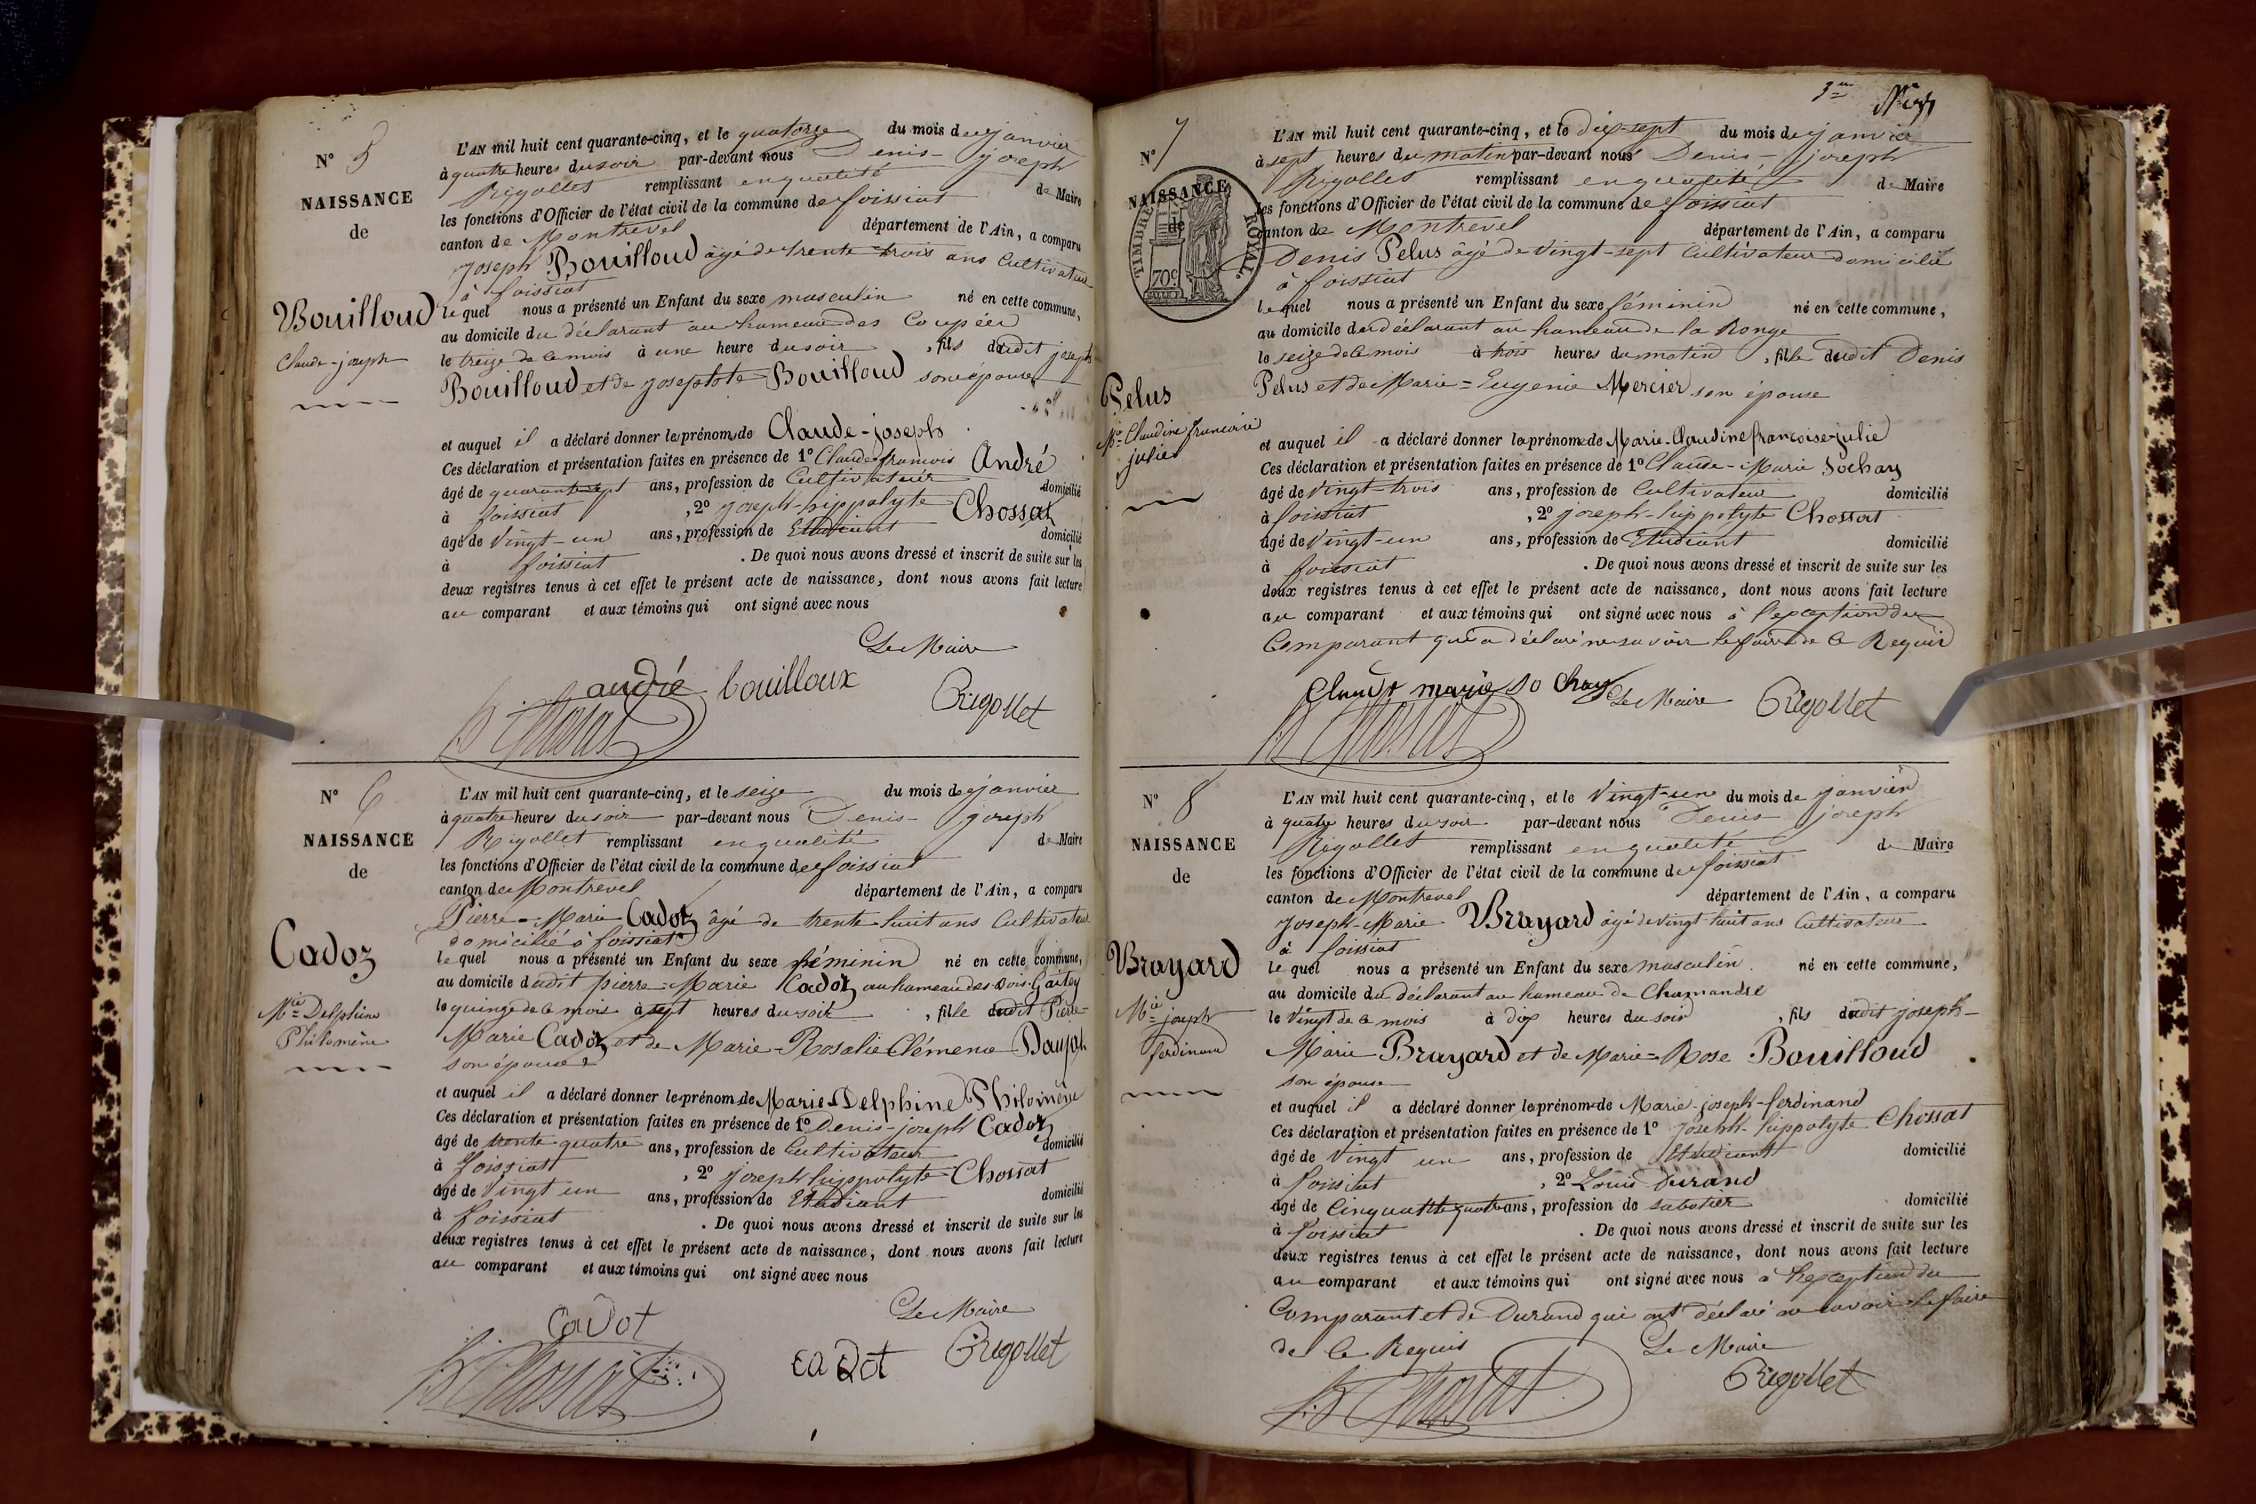 N° 5
NAISSANCE
de
Bouilloud
Claude-joseph
L'AN mil huit cent quarante-cinq, et le quatorze du mois de janvier
à quatre heures du soir par-devant nous Denis-joseph
Rigollet remplissant en qualité de Maire
les fonctions d'Officier de l'état civil de la commune de foissiat
canton de Montrevel département de l'Ain, a comparu
Joseph Bouilloud âgé de trente-trois ans Cultivateur
à foissiat
lequel nous a présenté un Enfant du sexe masculin né en cette commune,
au domicile du déclarant au hameau des Coupées
le treize de ce mois à une heure du soir, fils dudit joseph
Bouilloud et de josephte Bouilloud son épouse
et auquel il a déclaré donner les prénoms de Claude-joseph
Ces déclaration et présentation faites en présence de 1° Claude françois André
âgé de quarante-sept ans, profession de Cultivateur domicilié
à foissiat, 2° joseph-hippolyte Chossat
âgé de Vingt-un ans, profession de Etudiant domicilié
à foissiat. De quoi nous avons dressé et inscrit de suite sur les
deux registres tenus à cet effet le présent acte de naissance, dont nous avons fait lecture
au comparant et aux témoins qui ont signé avec nous
Le Maire
andré bouilloux Rigollet
h Chossat
N° 6
NAISSANCE
de
Cadoz
Mie Delphine
Philomène
L'AN mil huit cent quarante-cinq, et le seize du mois de janvier
à quatre heures du soir par-devant nous Denis-joseph
Rigollet remplissant en qualité de Maire
les fonctions d'Officier de l'état civil de la commune de foissiat
canton de Montrevel département de l'Ain, a comparu
Pierre-Marie Cadoz âgé de trente huit ans Cultivateur
domicilié à foissiat
lequel nous a présenté un Enfant du sexe féminin né en cette commune,
au domicile dudit pierre-Marie Cadoz au hameau des
le quinze de ce mois à sept heures du soir, fille dudit Pierre-
Marie Cadoz et de Marie-Rosalie Clémence
son épouse
et auquel il a déclaré donner les prénoms de Marie Delphine Philomène
Ces déclaration et présentation faites en présence de 1° Denis-joseph Cadoz
âgé de trente quatre ans, profession de Cultivateur domicilié
à foissiat, 2° joseph hippolyte Chossat
âgé de Vingt un ans, profession de Etudiant domicilié
à foissiat. De quoi nous avons dressé et inscrit de suite sur les
deux registres tenus à cet effet le présent acte de naissance, dont nous avons fait lecture
au comparant et aux témoins qui ont signé avec nous
Le Maire
CaDot
h Chossat caDot Rigollet
3me
N° 7
NAISSANCE
de
TIMBRE ROYAL
70c
Pelus
Mie Claudine francoise
julie
L'AN mil huit cent quarante-cinq, et le dix-sept du mois de janvier
à sept heures du matin par-devant nous Denis-joseph
Rigollet remplissant en qualité de Maire
les fonctions d'Officier de l'état civil de la commune de foissiat
canton de Montrevel département de l'Ain, a comparu
Denis Pelus âgé de Vingt-sept Cultivateur domicilié
à foissiat
lequel nous a présenté un Enfant du sexe féminin né en cette commune,
au domicile du déclarant au hameau de la Ronge
le seize de ce mois à trois heures du matin, fille dudit Denis
Pelus et de Marie-Eugenie Mercier son épouse
et auquel il a déclaré donner les prénoms de Marie-Claudine francoise julie
Ces déclaration et présentation faites en présence de 1° Claude-Marie Sochay
âgé de Vingt-trois ans, profession de Cultivateur domicilié
à foissiat, 2° joseph-hippolyte Chossat
âgé de Vingt-un ans, profession de Etudiant domicilié
à foissiat. De quoi nous avons dressé et inscrit de suite sur les
deux registres tenus à cet effet le présent acte de naissance, dont nous avons fait lecture
au comparant et aux témoins qui ont signé avec nous à l'exception du
Comparant qui a déclaré ne savoir le faire de ce Requis
Claude marie so chay Le Maire Rigollet
h Chossat
N° 8
NAISSANCE
de
Brayard
Mie joseph
ferdinand
L'AN mil huit cent quarante-cinq, et le Vingt-un du mois de janvier
à quatre heures du soir par-devant nous Denis joseph
Rigollet remplissant en qualité de Maire
les fonctions d'Officier de l'état civil de la commune de foissiat
canton de Montrevel département de l'Ain, a comparu
Joseph-Marie Brayard âgé de vingt huit ans Cultivateur
à foissiat
lequel nous a présenté un Enfant du sexe masculin né en cette commune,
au domicile du déclarant au hameau de Chamandré
le Vingt de ce mois à dix heures du soir, fils dudit joseph-
Marie Brayard et de Marie-Rose Bouilloud
son épouse
et auquel il a déclaré donner les prénoms de Marie-joseph-ferdinand
Ces déclaration et présentation faites en présence de 1° joseph-hippolyte Chossat
âgé de Vingt un ans, profession de Etudiant domicilié
à foissiat, 2° Louis Durand
âgé de Cinquante quatre ans, profession de sabotier domicilié
à foissiat. De quoi nous avons dressé et inscrit de suite sur les
deux registres tenus à cet effet le présent acte de naissance, dont nous avons fait lecture
au comparant et aux témoins qui ont signé avec nous à l'exception du
Comparant et de Durand qui ont déclaré ne savoir le faire
de ce Requis Le Maire
h Chossat Rigollet